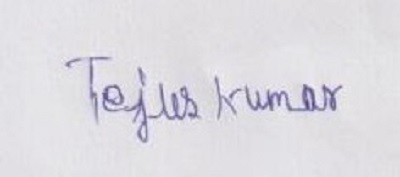 Tejus kumar